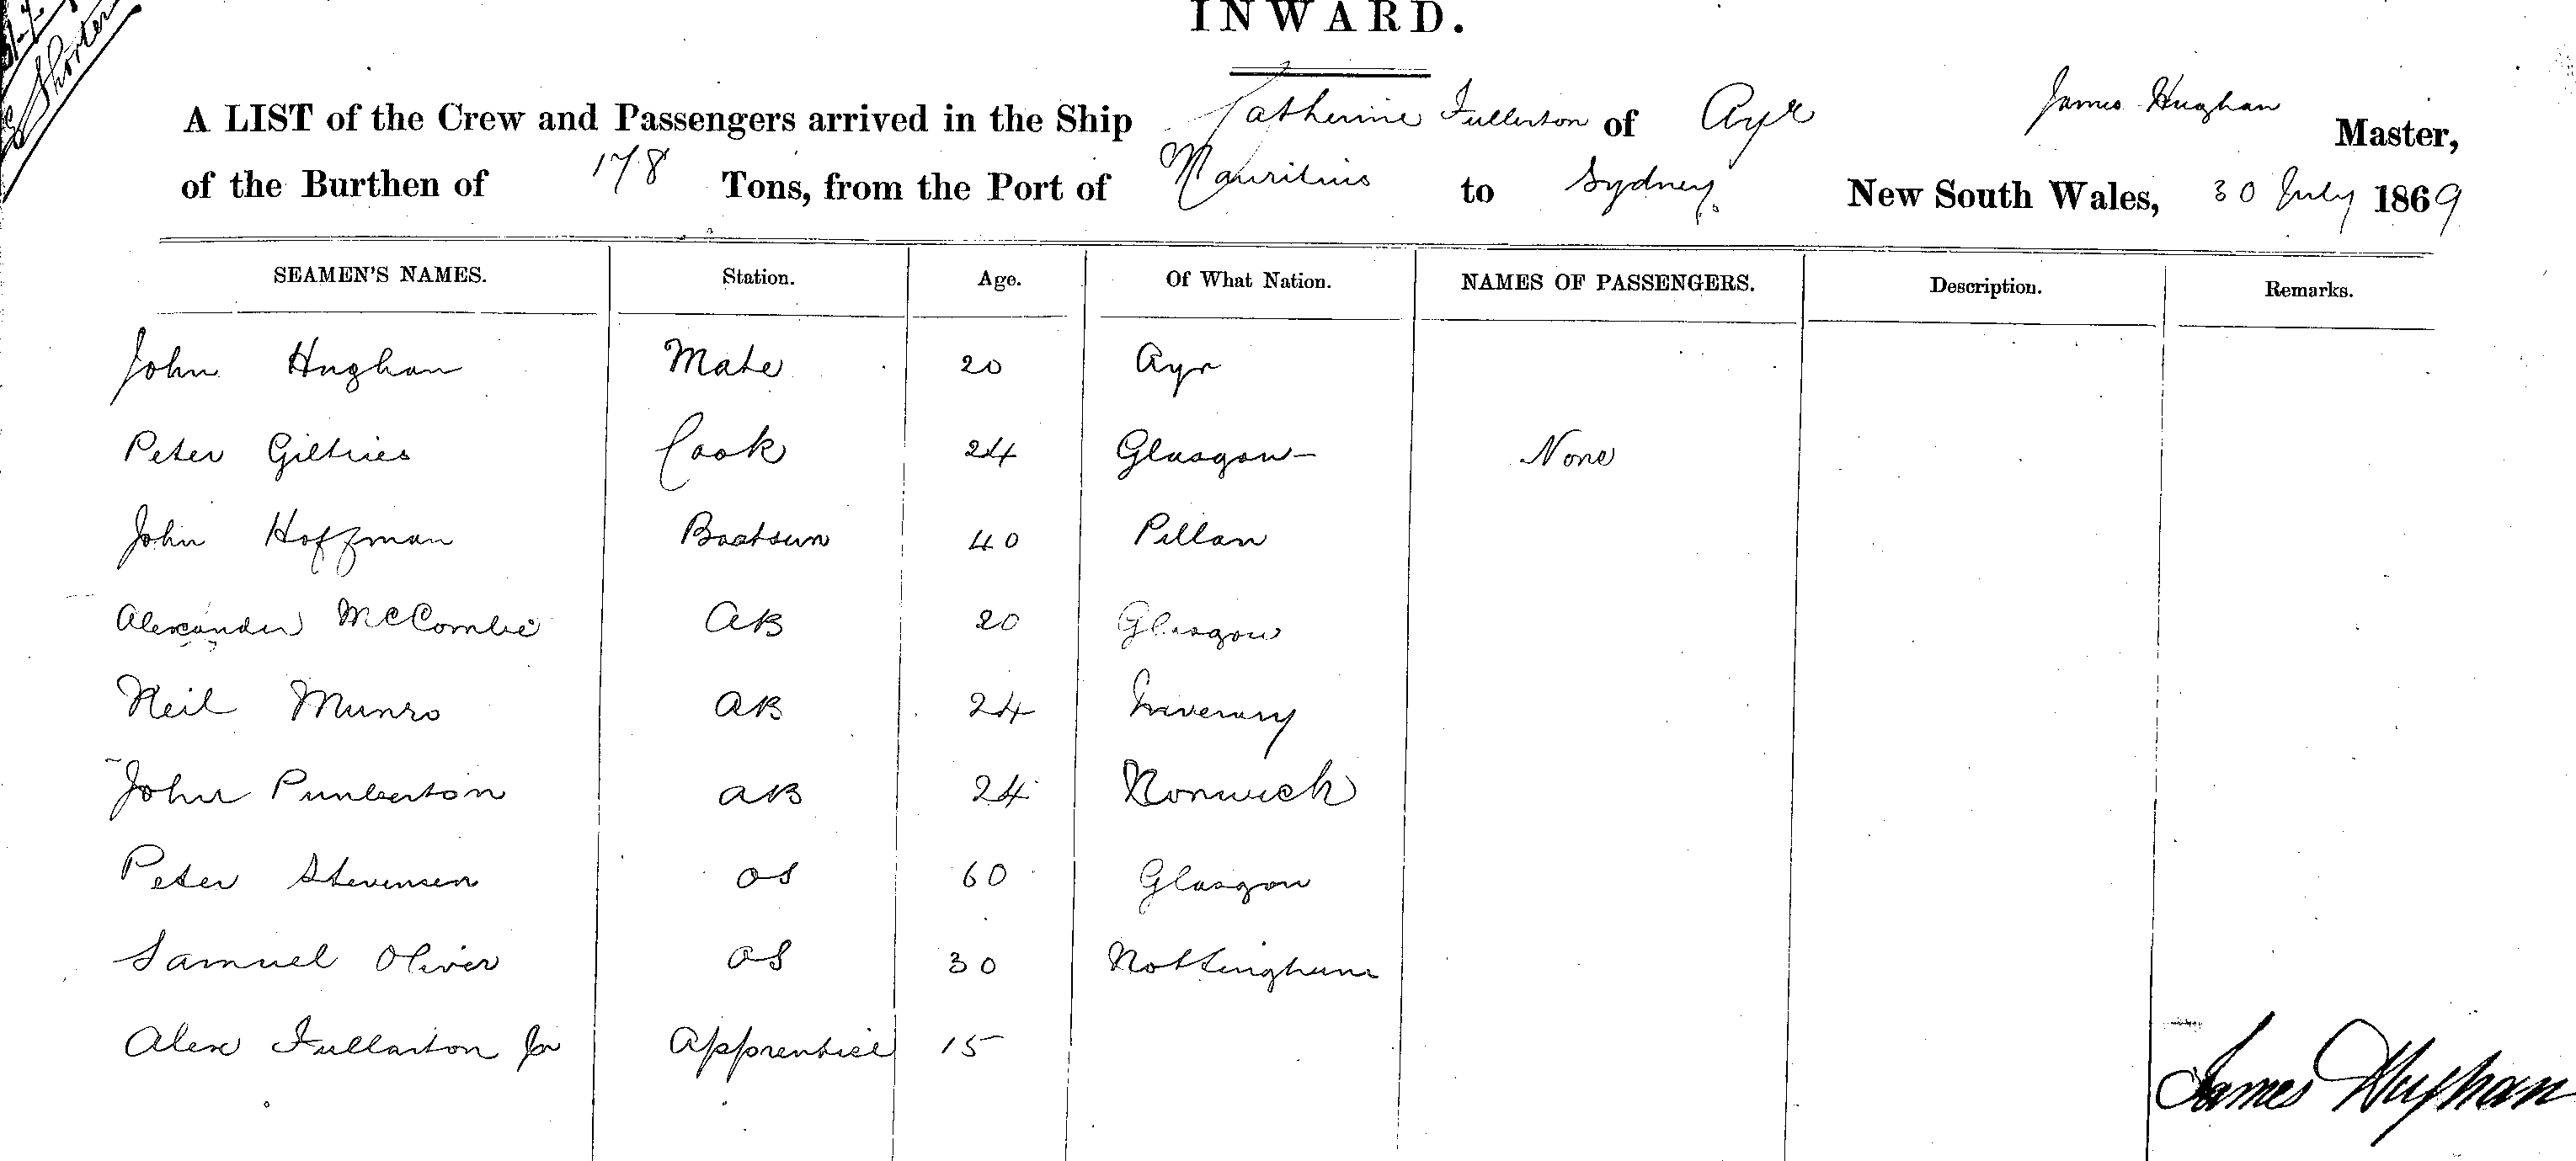 Shorter
INWARD.
A LIST of the Crew and Passengers arrived in the Ship Catherine Fullerton of Ayr James Hughan Master,
of the Burthen of 178 Tons, from the Port of Mauritius to Sydney. New South Wales, 30 July 1869
SEAMEN'S NAMES. Station. Age. Of What Nation. NAMES OF PASSENGERS. Description. Remarks.
John Hughan Mate 20 Ayr
Peter Giltries Cook 24 Glasgow None
John Hoffman Boatsun 40 Pillan
Alexander McCombie AB 20 Glasgow
Neil Munro AB 24 Inverary
John Pumberton AB 24 Norwich
Peter Stevensen OS 60 Glasgow
Samuel Oliver OS 30 Nottingham
Alex Fullarton Jr Apprentice 15
James Hughan